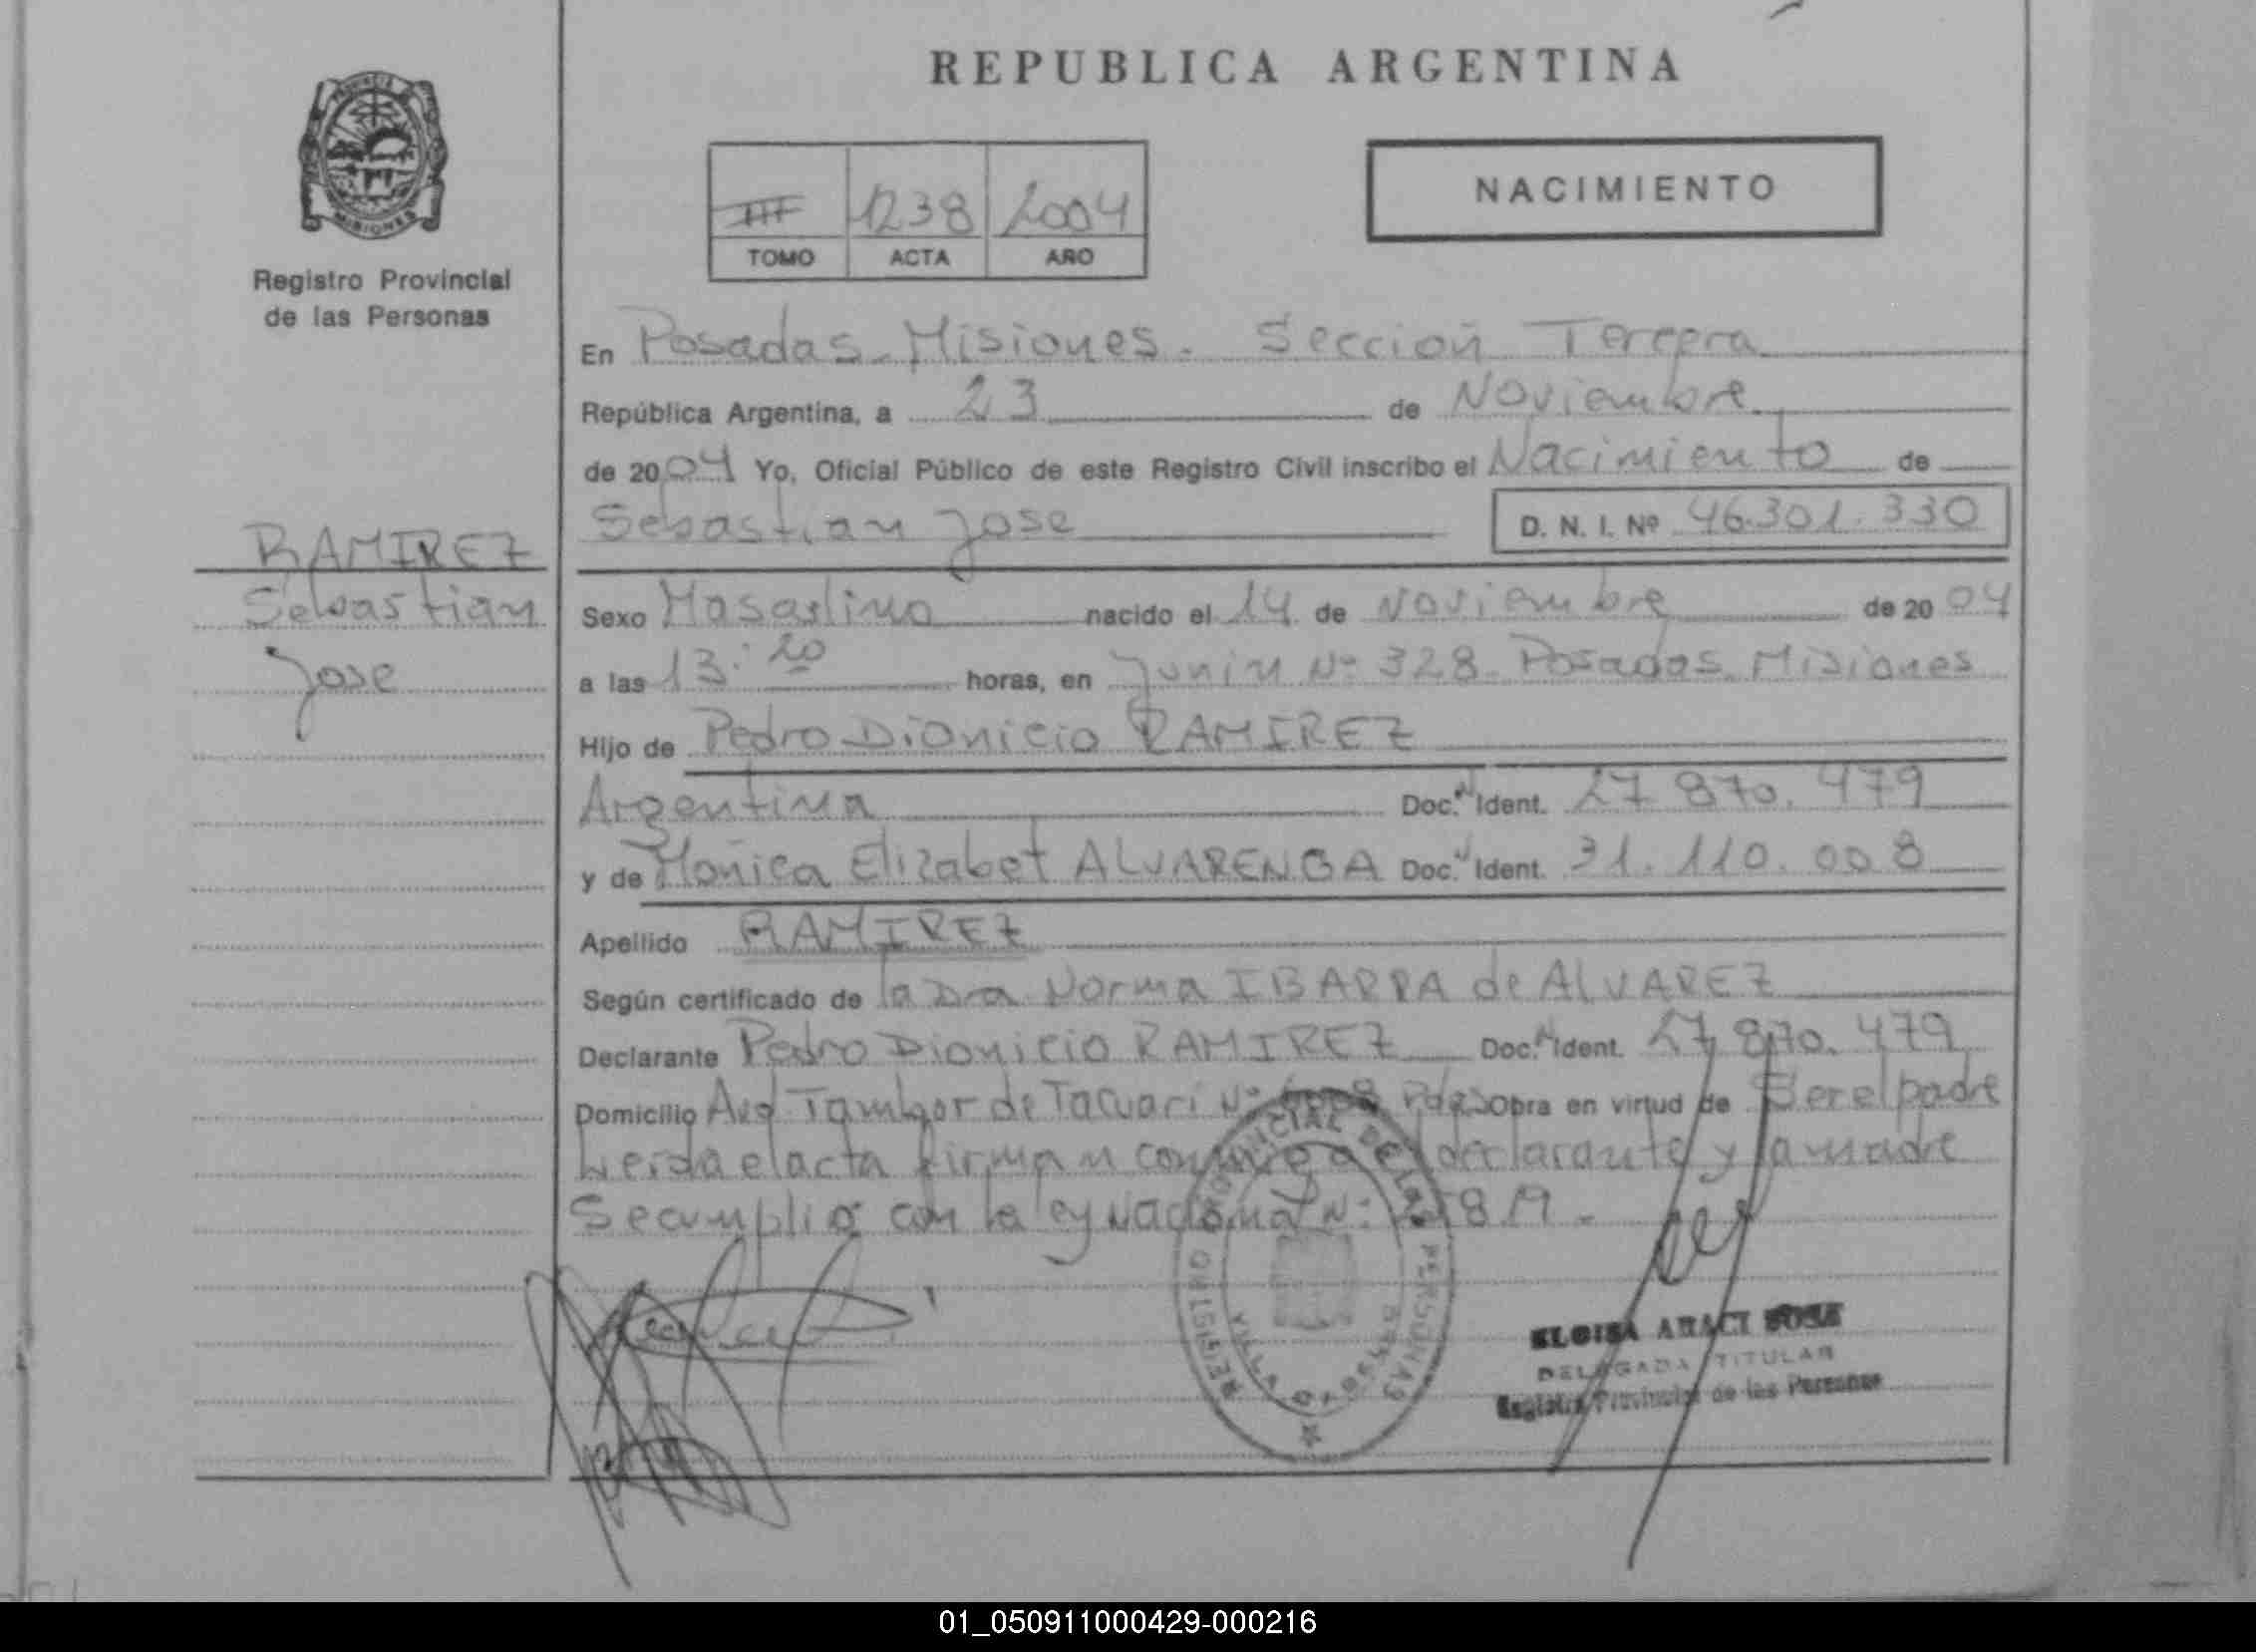 REPUBLICA ARGENTINA
PROVINCIA DE
MISIONES
Registro Provincial
de las Personas
NACIMIENTO
III 1238 2004
TOMO ACTA AÑO
En Posadas - Misiones. Sección Tercera
República Argentina, a 23 de Noviembre
de 2004 Yo, Oficial Público de este Registro Civil inscribo el Nacimiento de
Sebastian Jose D. N. I. Nº 46.301.330
RAMIREZ
Sebastian
Jose
Sexo Masculino nacido el 14 de Noviembre de 2004
a las 13:20 horas, en Junin Nº 328 Posadas Misiones
Hijo de Pedro Dionicio RAMIREZ
Argentina Doc. N Ident. 27.870.479
y de Monica Elizabet ALVARENGA Doc. N Ident. 31.110.008
Apellido RAMIREZ
Según certificado de la Dra Norma IBARRA de ALVAREZ
Declarante Pedro Dionicio RAMIREZ Doc. N Ident. 27.870.479
Domicilio Avd. Tambor de Tacuari Nº Pdas Obra en virtud de Ser el padre
Leida el acta firman conmigo el declarante y la madre
Se cumplio con la ley Nacional Nº
REGISTRO PROVINCIAL DE LAS PERSONAS
ELOISA ARACI SOSA
DELEGADA TITULAR
Registro Provincial de las Personas
01_050911000429-000216